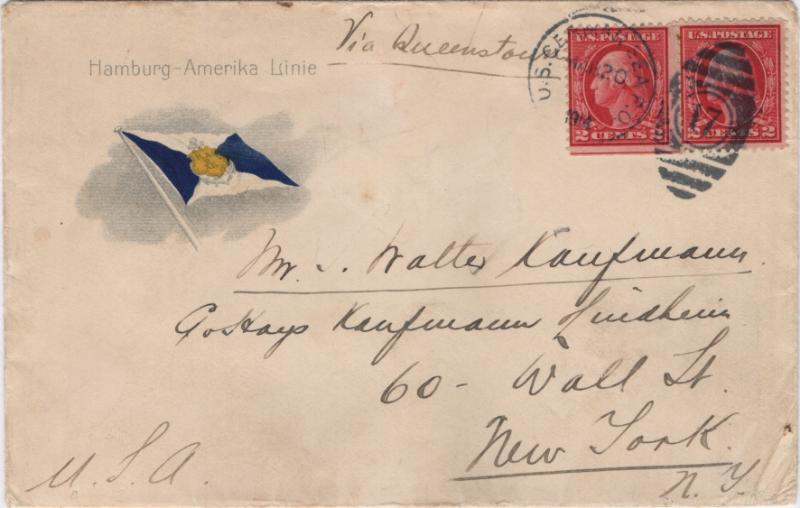 Via Queenstown
Hamburg-Amerika Linie
U.S. POSTAGE
2 CENTS 2
U.S. POSTAGE
2 CENTS 2
U.S. GERMAN SEA P.O.
20
17
Mr. S. Walter Kaufmann.
Kaufmann Lindheim
60- Wall St.
New York.
N.Y.
U.S.A.